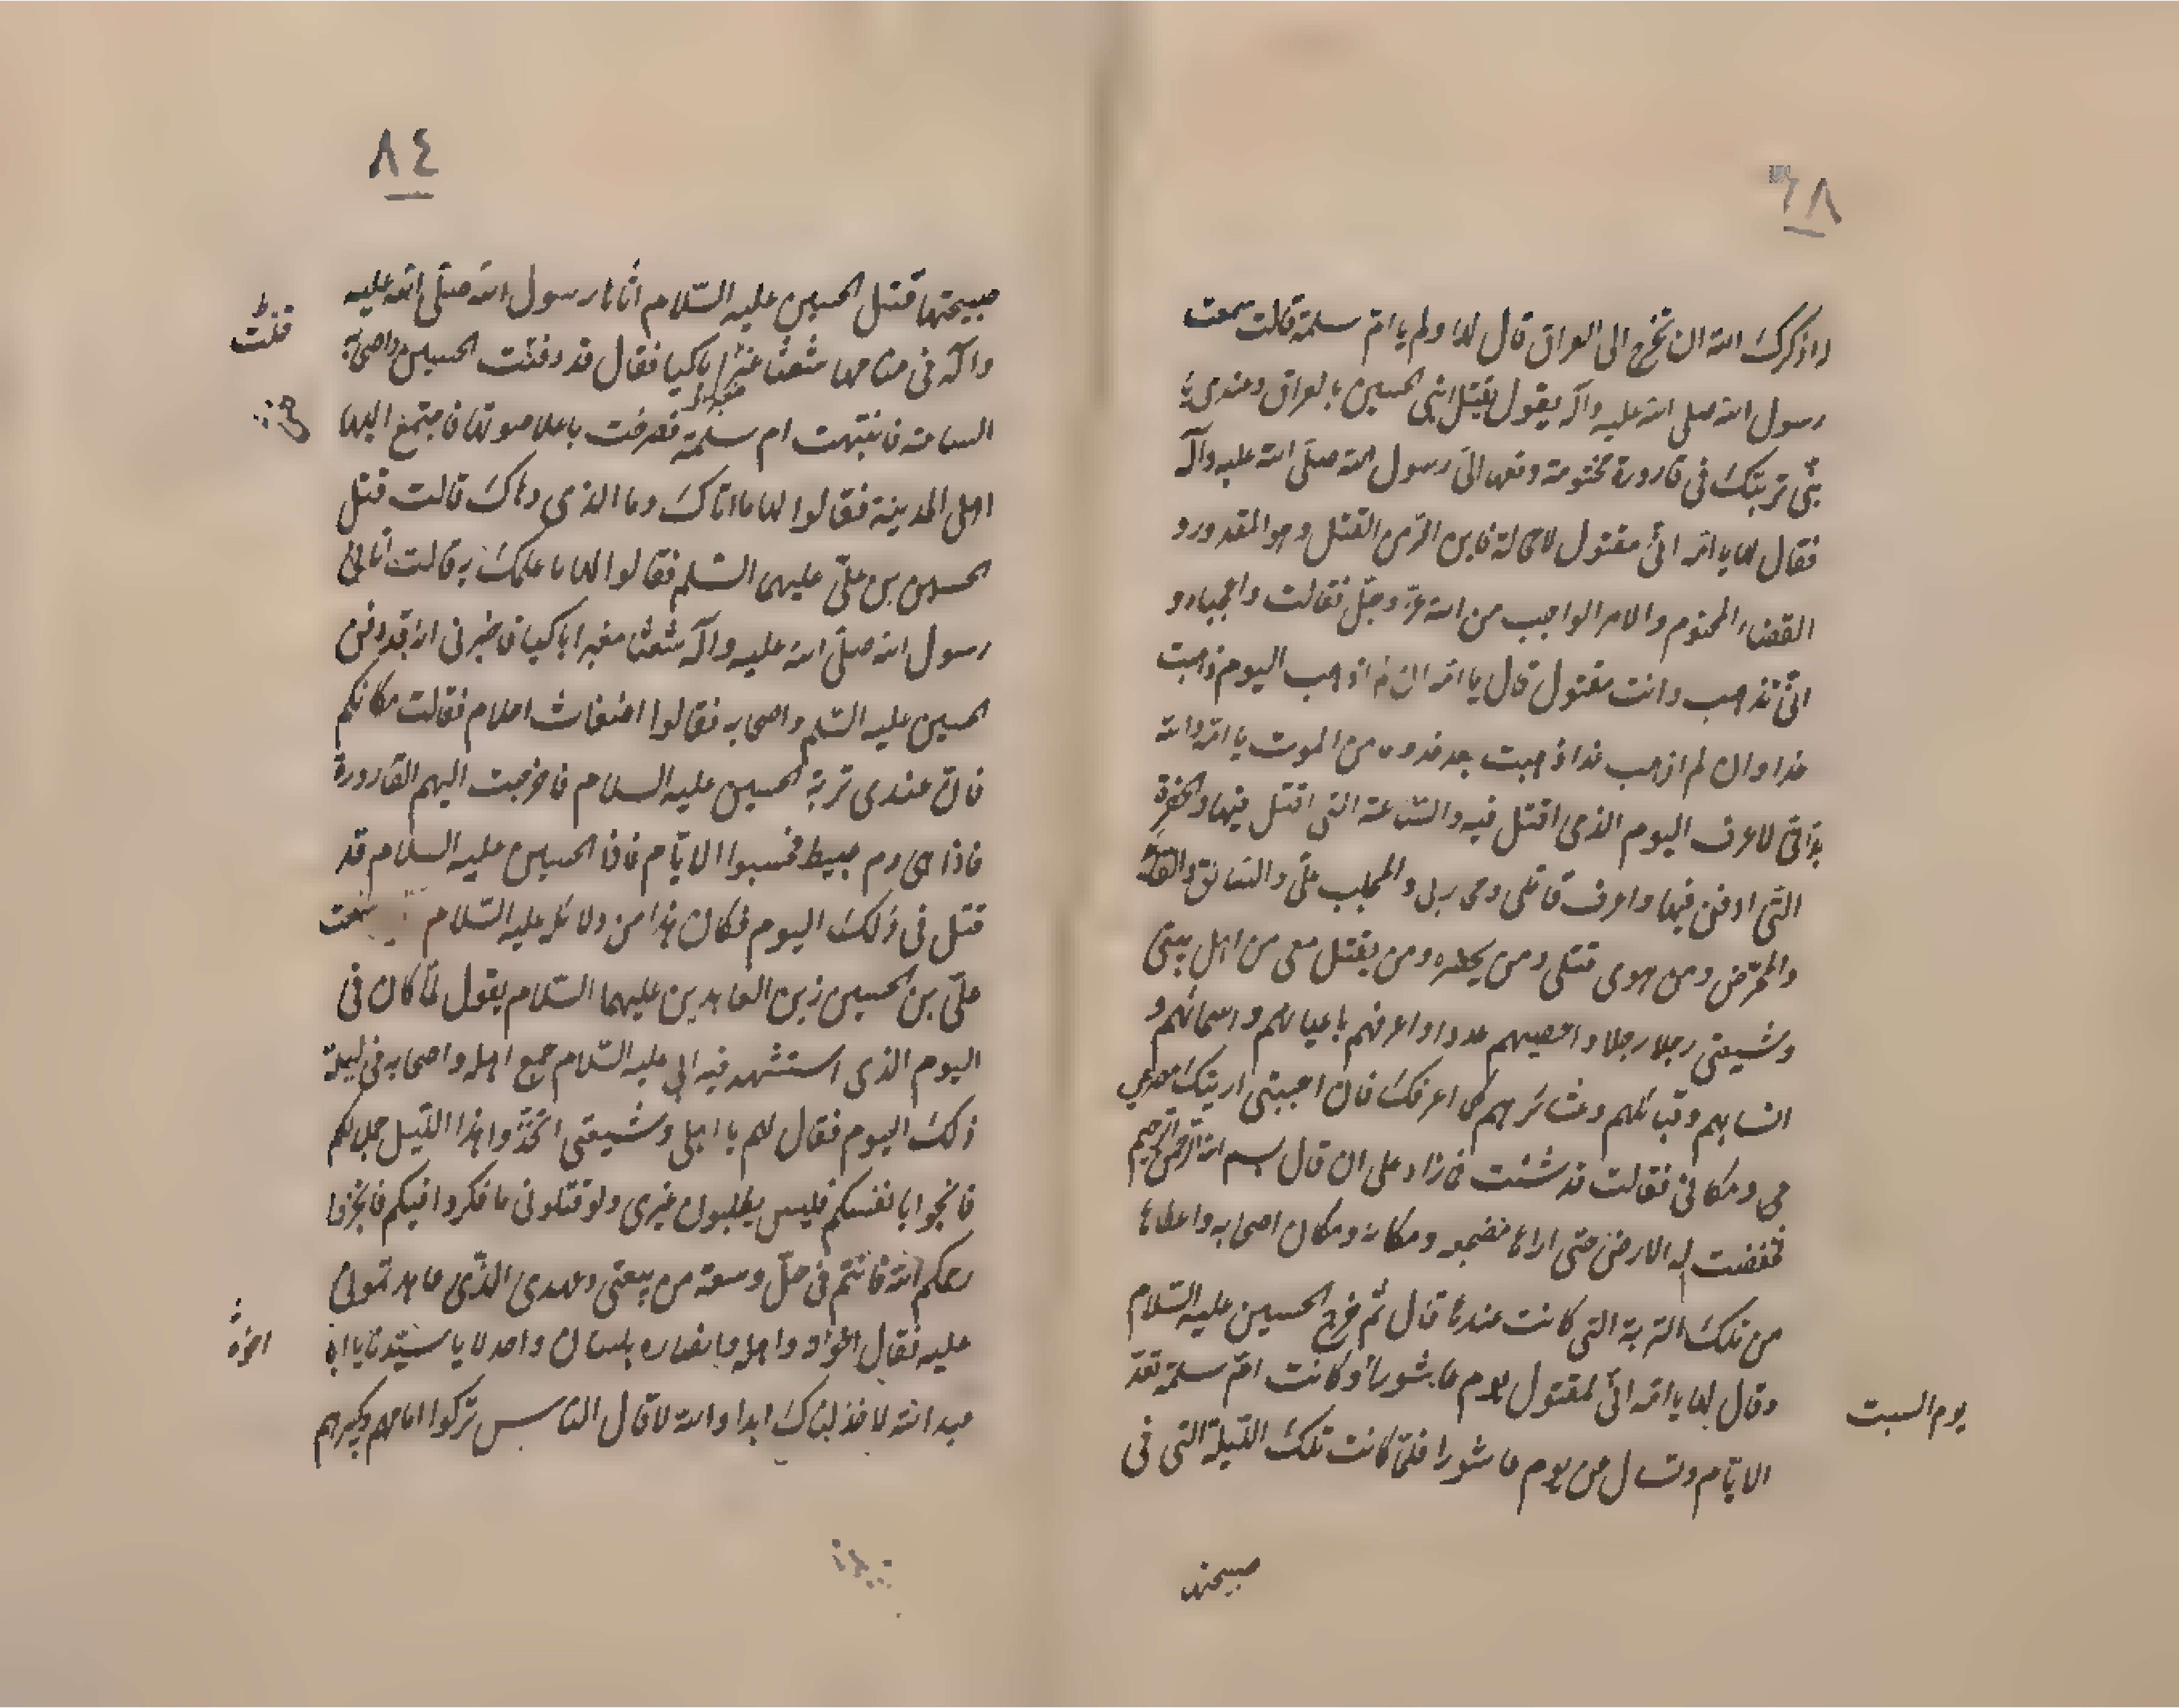 واذكرك الله ان تخرج الى العراق قال لها ولم يا ام سلمة قالت سمعت
رسول الله صلى الله عليه وآله يقول يقتل ابني الحسين بالعراق وعندي يا
بنيّ تربتك في قارورة مختومة دفعها اليّ رسول الله صلّى الله عليه وآله
فقال لها يا امّه انّي مقتول لا محالة فاين المفر من القتل وهو المقدور و
القضاء المحتوم والامر الواجب من الله عزّ وجلّ فقالت واعجباه و
انّى تذهب وانت مقتول قال يا امّه ان لم اذهب اليوم ذهبت
غدا وان لم اذهب غدا ذهبت بعد غد وما من الموت يا امّه والله
بدّ انّي لاعرف اليوم الذي اقتل فيه والسّاعة التي اقتل فيها والحفرة
التي ادفن فيها واعرف قاتلي ومحاربي والمجلب عليّ والسّائق والقائد
والمحرّض ومن هوى قتلي ومن يحضره ومن يقتل معي من اهل بيتي
وشيعتي رجلا رجلا واحصيهم عددا واعرفهم باعيانهم واسمائهم و
انسابهم وقبائلهم وعشائرهم كما اعرفك فان احببتي اريتك مصرعي
ومكاني فقالت قد شئت فما زاد على ان قال بسم الله الرّحمن الرّحيم
فخفضت له الارض حتى اراها مضجعه ومكانه ومكان اصحابه واعطاها
من تلك التربة التي كانت عندها قال ثم خرج الحسين عليه السّلام
وقال لها يا امّه انّي لمقتول يوم عاشورا وكانت امّ سلمة تعدّ
يوم السبت
الايّام وتسال عن يوم عاشورا فلمّا كانت تلك اللّيلة التي في
صبيحتها
٨٤
صبيحتها قتل الحسين عليه السّلام اتاها رسول الله صلّى الله عليه
وآله في منامها شعثا مغبرا باكيا فقال قد دفنت الحسين واصحابه
قتلت
الساعة فانتبهت ام سلمة فصرخت باعلا صوتها فاجتمع اليها
اهل المدينة فقالوا لها ما اتاك وما الذي دهاك قالت قتل
الحسين بن عليّ عليهم السّلم فقالوا لها ما علمك به قالت اتاني
رسول الله صلّى الله عليه وآله شعثا مغبرا باكيا فاخبرني انه قد دفن
الحسين عليه السّلم واصحابه فقالوا اضغاث احلام فقالت مكانكم
فانّ عندي تربة الحسين عليه السلام فاخرجت اليهم القارورة
فاذا هي دم عبيط فحسبوا الايّام فاذا الحسين عليه السلام قد
قتل في ذلك اليوم فكان هذا من دلائله عليه السّلام سمعت
عليّ بن الحسين زين العابدين عليهما السّلام يقول لمّا كان في
اليوم الذي استشهد فيه ابي عليه السّلام جمع اهله واصحابه في ليلة
ذلك اليوم فقال لهم يا اهلي وشيعتي اتّخذوا هذا اللّيل جملا لكم
فانجوا بانفسكم فليس يطلبون غيري ولو قتلوني ما فكروا فيكم فانجوا
رحمكم الله فانتم في حلّ وسعة من بيعتي وعهدي الذّي عاهدتموني
عليه فقال اخوته واهله وانصاره بلسان واحد لا يا سيّدنا يا ابا
اخوة
عبد الله لا خذلناك ابدا والله لا قال الناس تركوا امامهم وكبيرهم